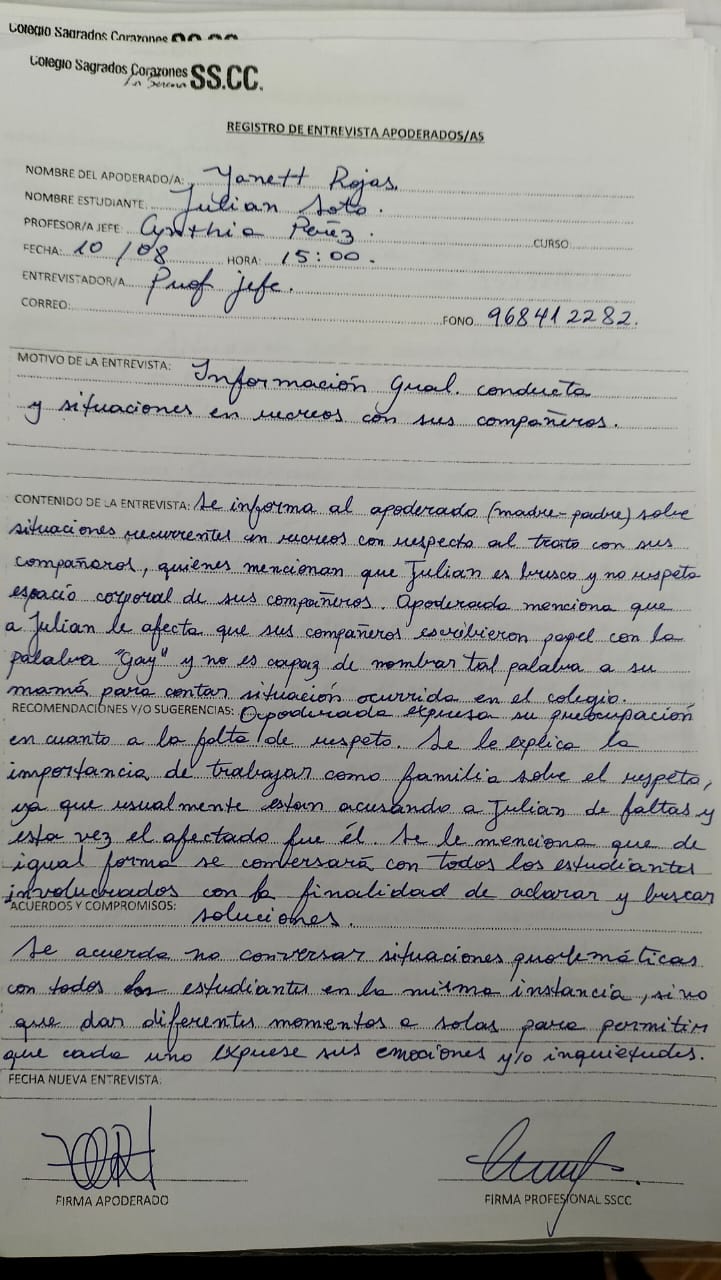 Colegio Sagrados Corazones SS.CC.
Colegio Sagrados Corazones SS.CC.
La Serena
REGISTRO DE ENTREVISTA APODERADOS/AS
NOMBRE DEL APODERADO/A: Yanett Rojas.
NOMBRE ESTUDIANTE: Julian Soto.
PROFESOR/A JEFE: Cynthia Pérez. CURSO:
FECHA: 10/08 HORA: 15:00.
ENTREVISTADOR/A Prof jefe.
CORREO: FONO 968412282.
MOTIVO DE LA ENTREVISTA: Información Gral. conducta
y situaciones en recreos con sus compañeros.
CONTENIDO DE LA ENTREVISTA: Se informa al apoderado (madre-padre) sobre
situaciones recurrentes en recreos con respecto al trato con sus
compañeros, quienes mencionan que Julian es brusco y no respeta
espacio corporal de sus compañeros. Apoderada menciona que
a Julian le afecta que sus compañeros escribieron papel con la
palabra "Gay" y no es capaz de nombrar tal palabra a su
mamá para contar situación ocurrida en el colegio.
RECOMENDACIONES Y/O SUGERENCIAS: Apoderada expresa su preocupación
en cuanto a la falta de respeto. Se le explica la
importancia de trabajar como familia sobre el respeto,
ya que usualmente estan acusando a Julian de faltas y
esta vez el afectado fue él. Se le menciona que de
igual forma se conversará con todos los estudiantes
involucrados con la finalidad de aclarar y buscar
ACUERDOS Y COMPROMISOS: soluciones.
Se acuerda no conversar situaciones
con todos los estudiantes en la misma instancia, sino
que dar diferentes momentos a solas para permitir
que cada uno exprese sus emociones y/o inquietudes.
FECHA NUEVA ENTREVISTA:
FIRMA APODERADO FIRMA PROFESIONAL SSCC